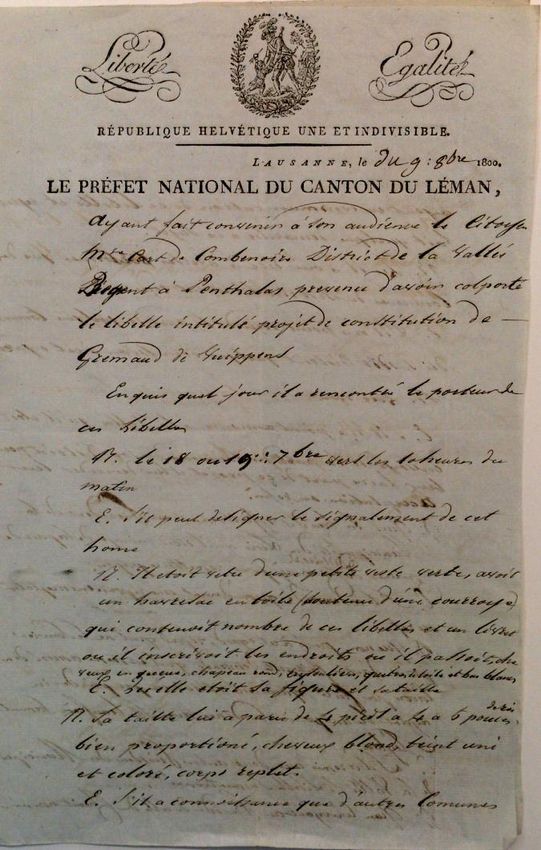 Liberté Egalité
RÉPUBLIQUE HELVÉTIQUE UNE ET INDIVISIBLE.
LAUSANNE, le du 9: 8bre 1800.
LE PRÉFET NATIONAL DU CANTON DU LÉMAN,
Ayant fait convenir à son audience le Citoyen
District de la Vallée
à Penthalaz prevenu d'avoir colporté
le libelle intitulé projet de constitution de
Gremaud de Guippens
Enquis quel jour il a rencontré le porteur de
ces libelles
R. le 18 ou 19: 7bre vers les 10 heures du
matin
E. S'il peut désigner le signalement de cet
home
R. Il etoit vetu d'une petite veste verte, avoit
un havresac en toile (soutenu d'une courroye)
qui contenoit nombre de ces libelles et un livret
ou il inscrivoit les endroits ou il passoit, che
veux en queue, chapeau rond, et bas blancs
E. Quelle etoit sa figure et sa taille
R. Sa taille lui a paru de 4 pied à 4 a 6 pouces,
bien proportioné, cheveux blond, teint uni
et coloré, corps replet.
E. S'il a connoissance que d'autres Comunes